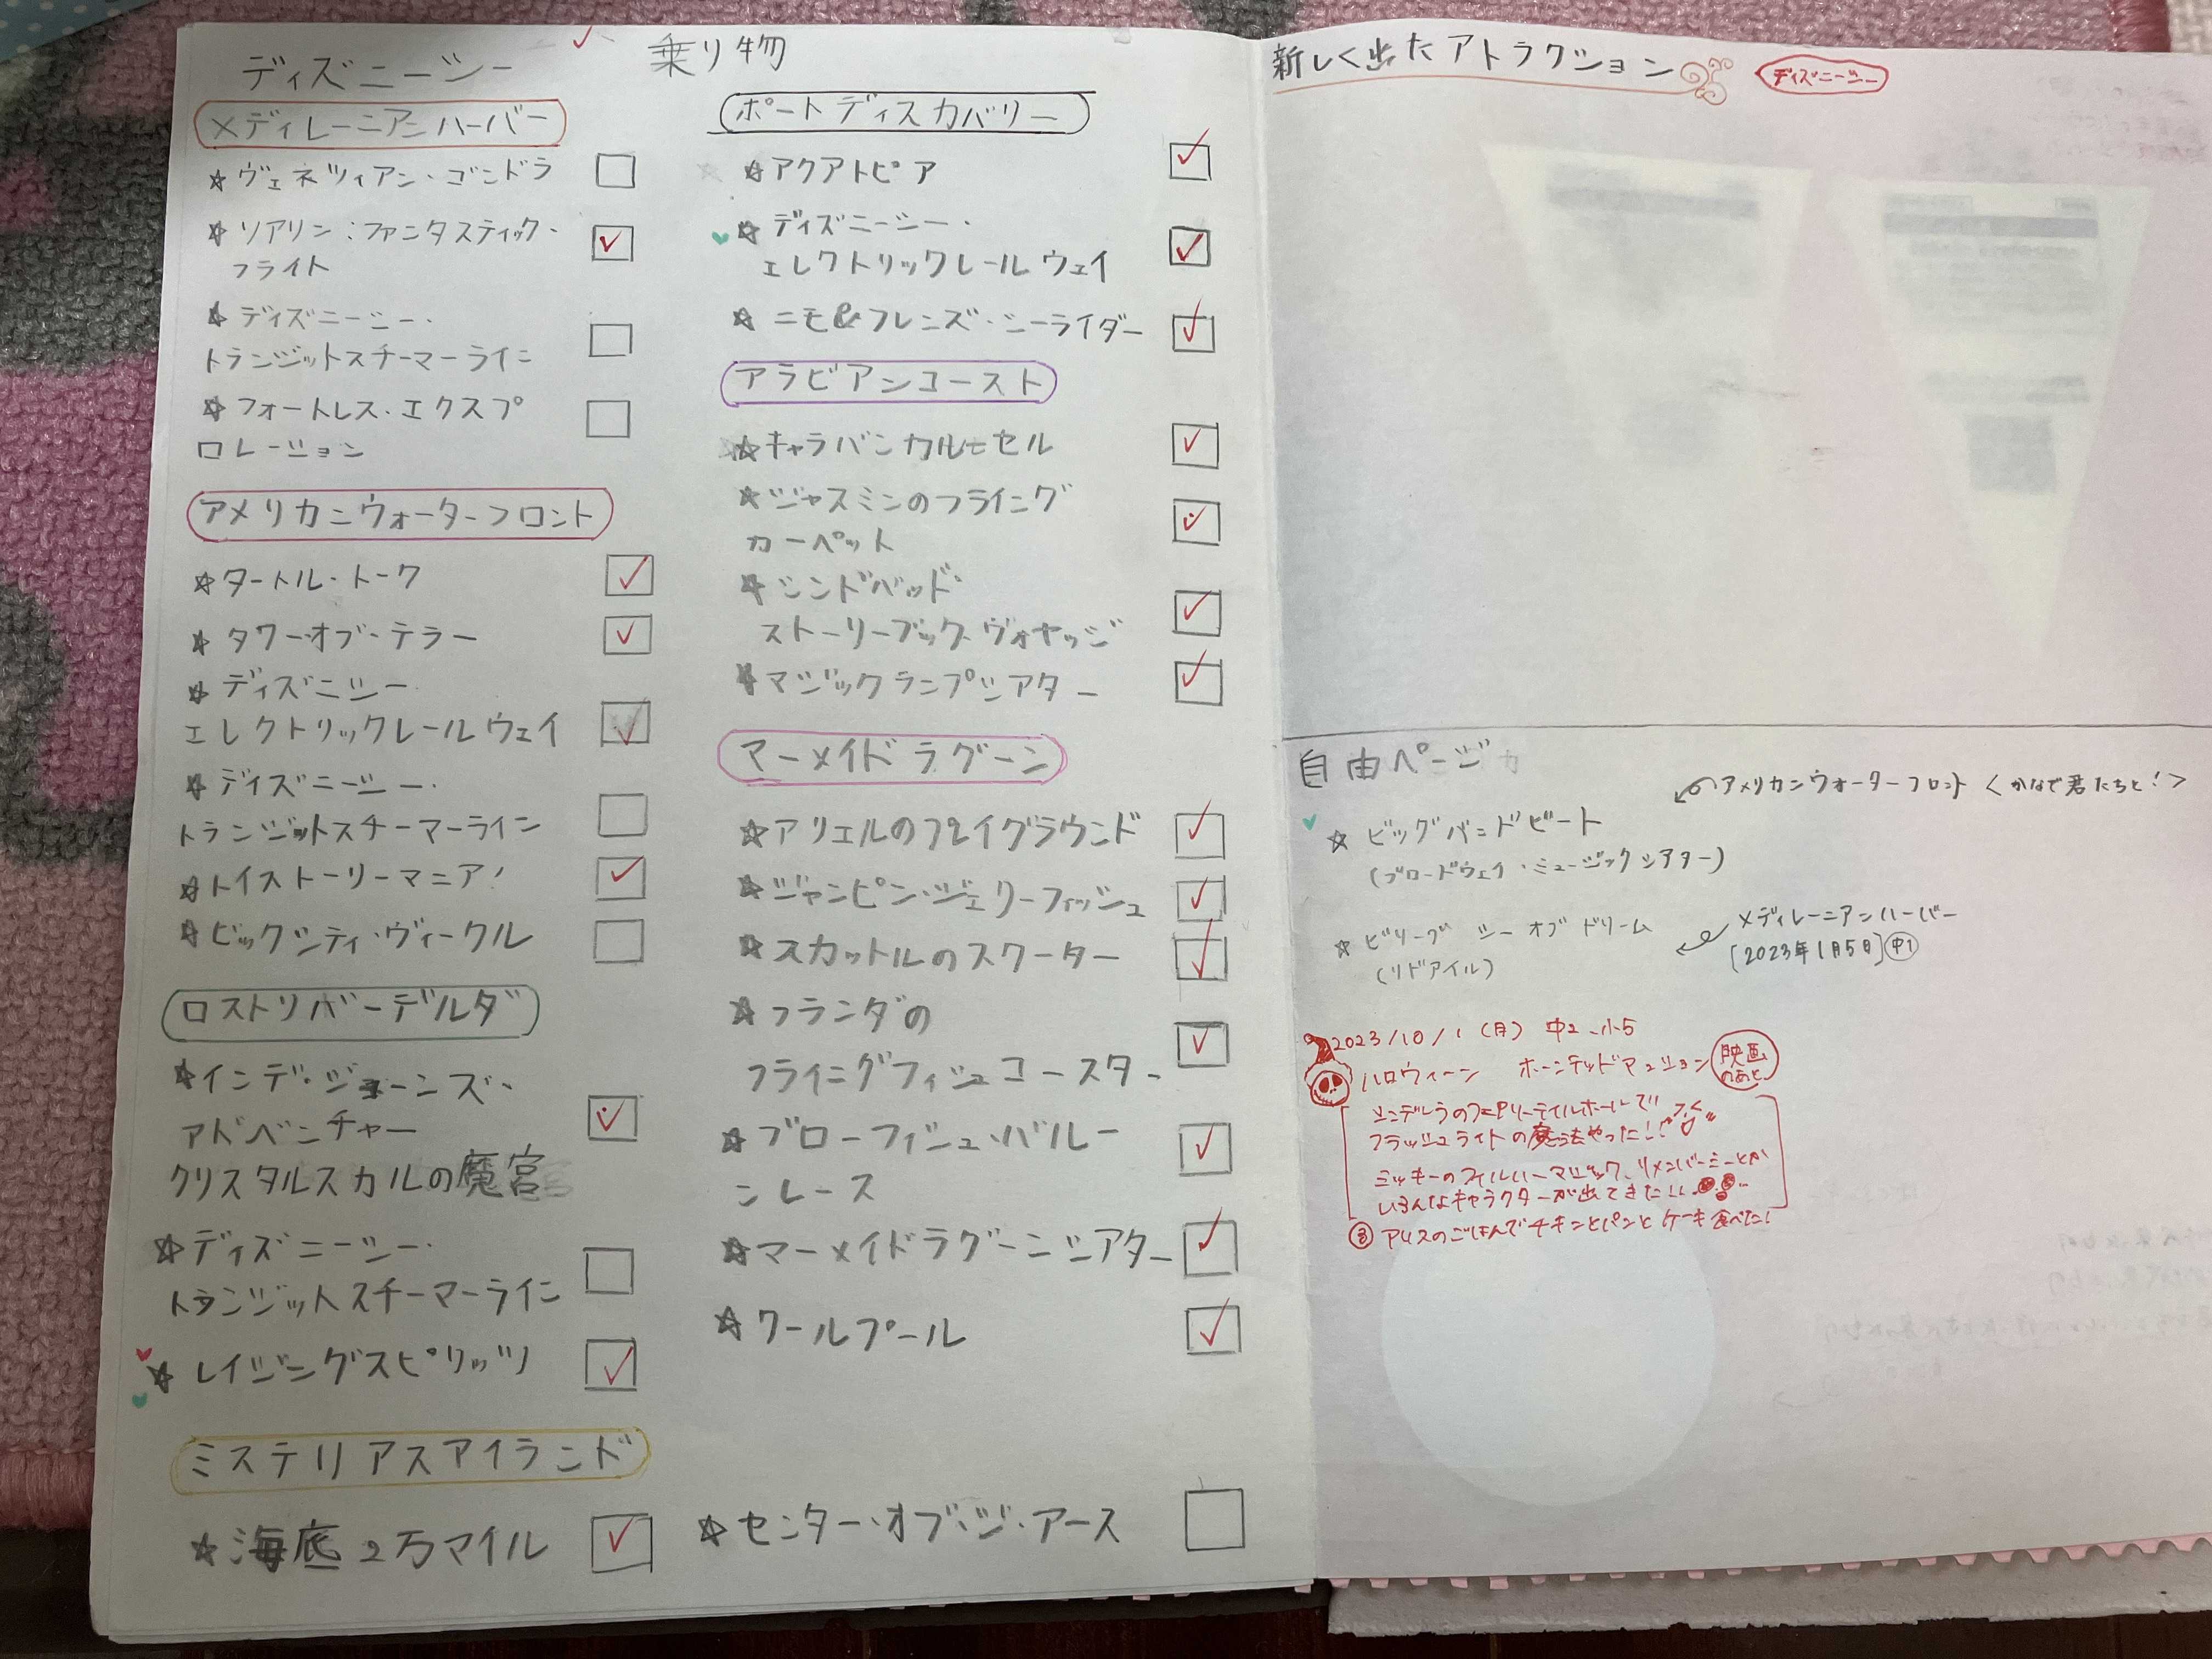 ディズニーシー 乗り物
メディレーニアンハーバー
☆ ヴェネツィアン・ゴンドラ □
☆ ソアリン:ファンタスティック・ ☑
フライト
☆ ディズニーシー・
トランジットスチーマーライン □
☆ フォートレス・エクスプ □
ロレーション
アメリカンウォーターフロント
☆ タートル・トーク ☑
☆ タワー・オブ・テラー ☑
☆ ディズニシー
エレクトリックレールウェイ ☑
☆ ディズニーシー・
トランジットスチーマーライン □
☆ トイストーリーマニア! ☑
☆ ビックシティ・ヴィークル □
ロストリバーデルダ
☆ インディ・ジョーンズ・
アドベンチャー ☑
クリスタルスカルの魔宮
☆ ディズニーシー・
トランジットスチーマーライン □
☆ レイジングスピリッツ ☑
ミステリアスアイランド
☆ 海底2万マイル ☑
☆ センター・オブ・ジ・アース □
ポートディスカバリー
☆ アクアトピア ☑
☆ ディズニーシー・
エレクトリックレールウェイ ☑
☆ ニモ&フレンズ・シーライダー ☑
アラビアンコースト
☆ キャラバンカルーセル ☑
☆ ジャスミンのフライング ☑
カーペット
☆ シンドバッド・
ストーリーブック・ヴォヤッジ ☑
☆ マジックランプシアター ☑
マーメイドラグーン
☆ アリエルのプレイグラウンド ☑
☆ ジャンピン・ジェリーフィッシュ ☑
☆ スカットルのスクーター ☑
☆ フランダの
フライングフィシュコースター ☑
☆ ブローフィシュ・バルー ☑
ンレース
☆ マーメイドラグーンシアター ☑
☆ ワールプール ☑
新しく出たアトラクション ディズニーシー
自由ページ
アメリカンウォーターフロント <かなで君たちと!>
☆ ビッグバンドビート
(ブロードウェイ・ミュージックシアター)
☆ ビリーブ シー オブ ドリーム
(リドアイル)
メディレーニアンハーバー
[2023年1月5日]中1
2023/10/1(月) 中2、小5
ハロウィーン ホーンテッドマンション 映画のあと
シンデレラのフェアリーテイルホールで
フラッシュライトの魔法やった!!
ミッキーのフィルハーマジック、リメンバーミーとか
いろんなキャラクターが出てきた!!
③ アリスのごはんでチキンとパンとケーキ食べた!